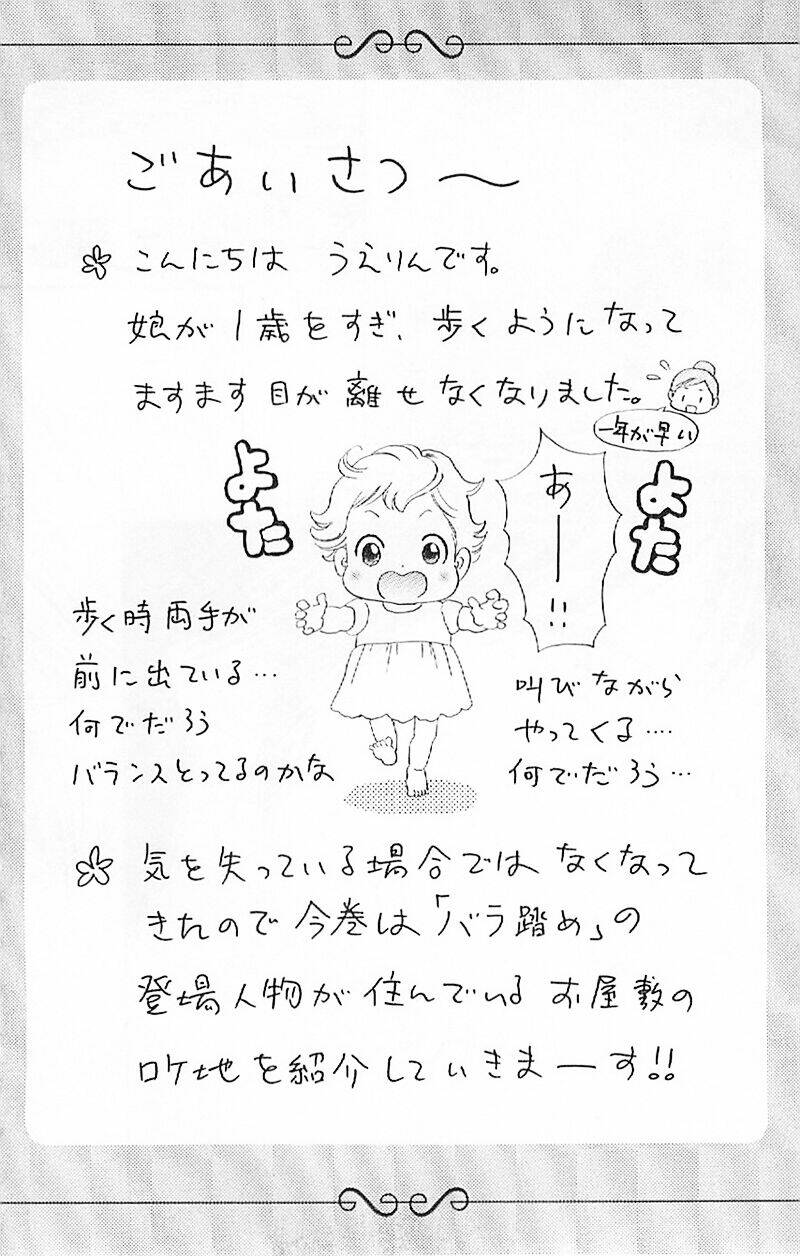 ごあいさつ〜
こんにちは うえりんです。
娘が1歳をすぎ、歩くようになって
ますます目が離せなくなりました。
一年が早い
よた
あーー!!
よた
歩く時両手が
前に出ている…
何でだろう
バランスとってるのかな
叫びながら
やってくる‥‥
何でだろう…
気を失っている場合ではなくなって
きたので今巻は「バラ踏め」の
登場人物が住んでいるお屋敷の
ロケ地を紹介していきまーす!!